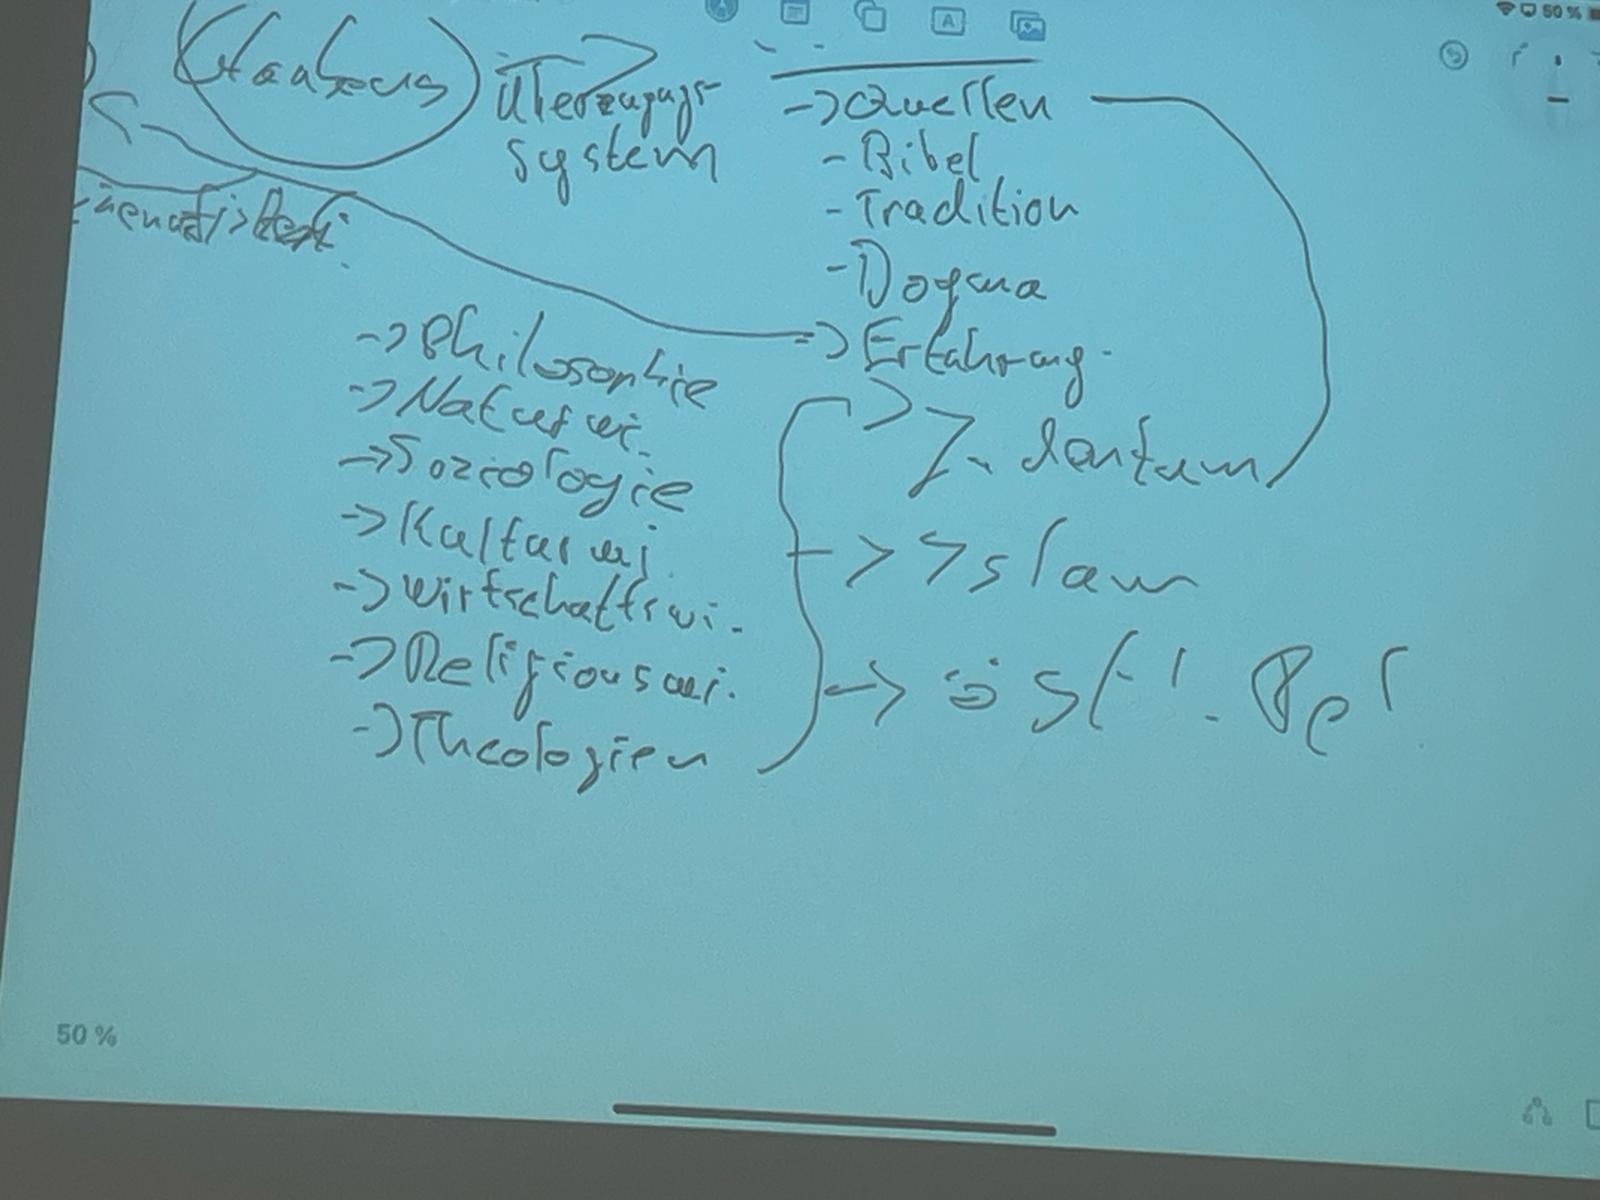 60 %
Glaubens
Überzeugungs-
system
-> Quellen
- Bibel
- Tradition
- Dogma
-> Erfahrung.
-> Philosophie
-> Naturwi.
-> Soziologie
-> Kulturwi.
-> Wirtschaftswi.
-> Religionswi.
-> Theologien
-> Islam
-> östl. Rel.
50 %